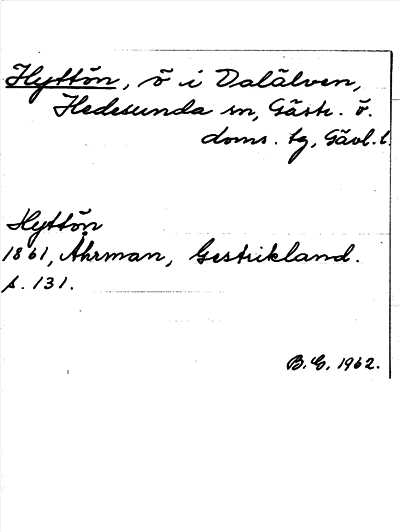 Hyttön, ö i Dalälven,
Hedesunda sn, Gästr. ö.
doms. tg, Gävl. l.
Hyttön
1861, Åhrman, Gestrikland.
s. 131.
B. G. 1962.